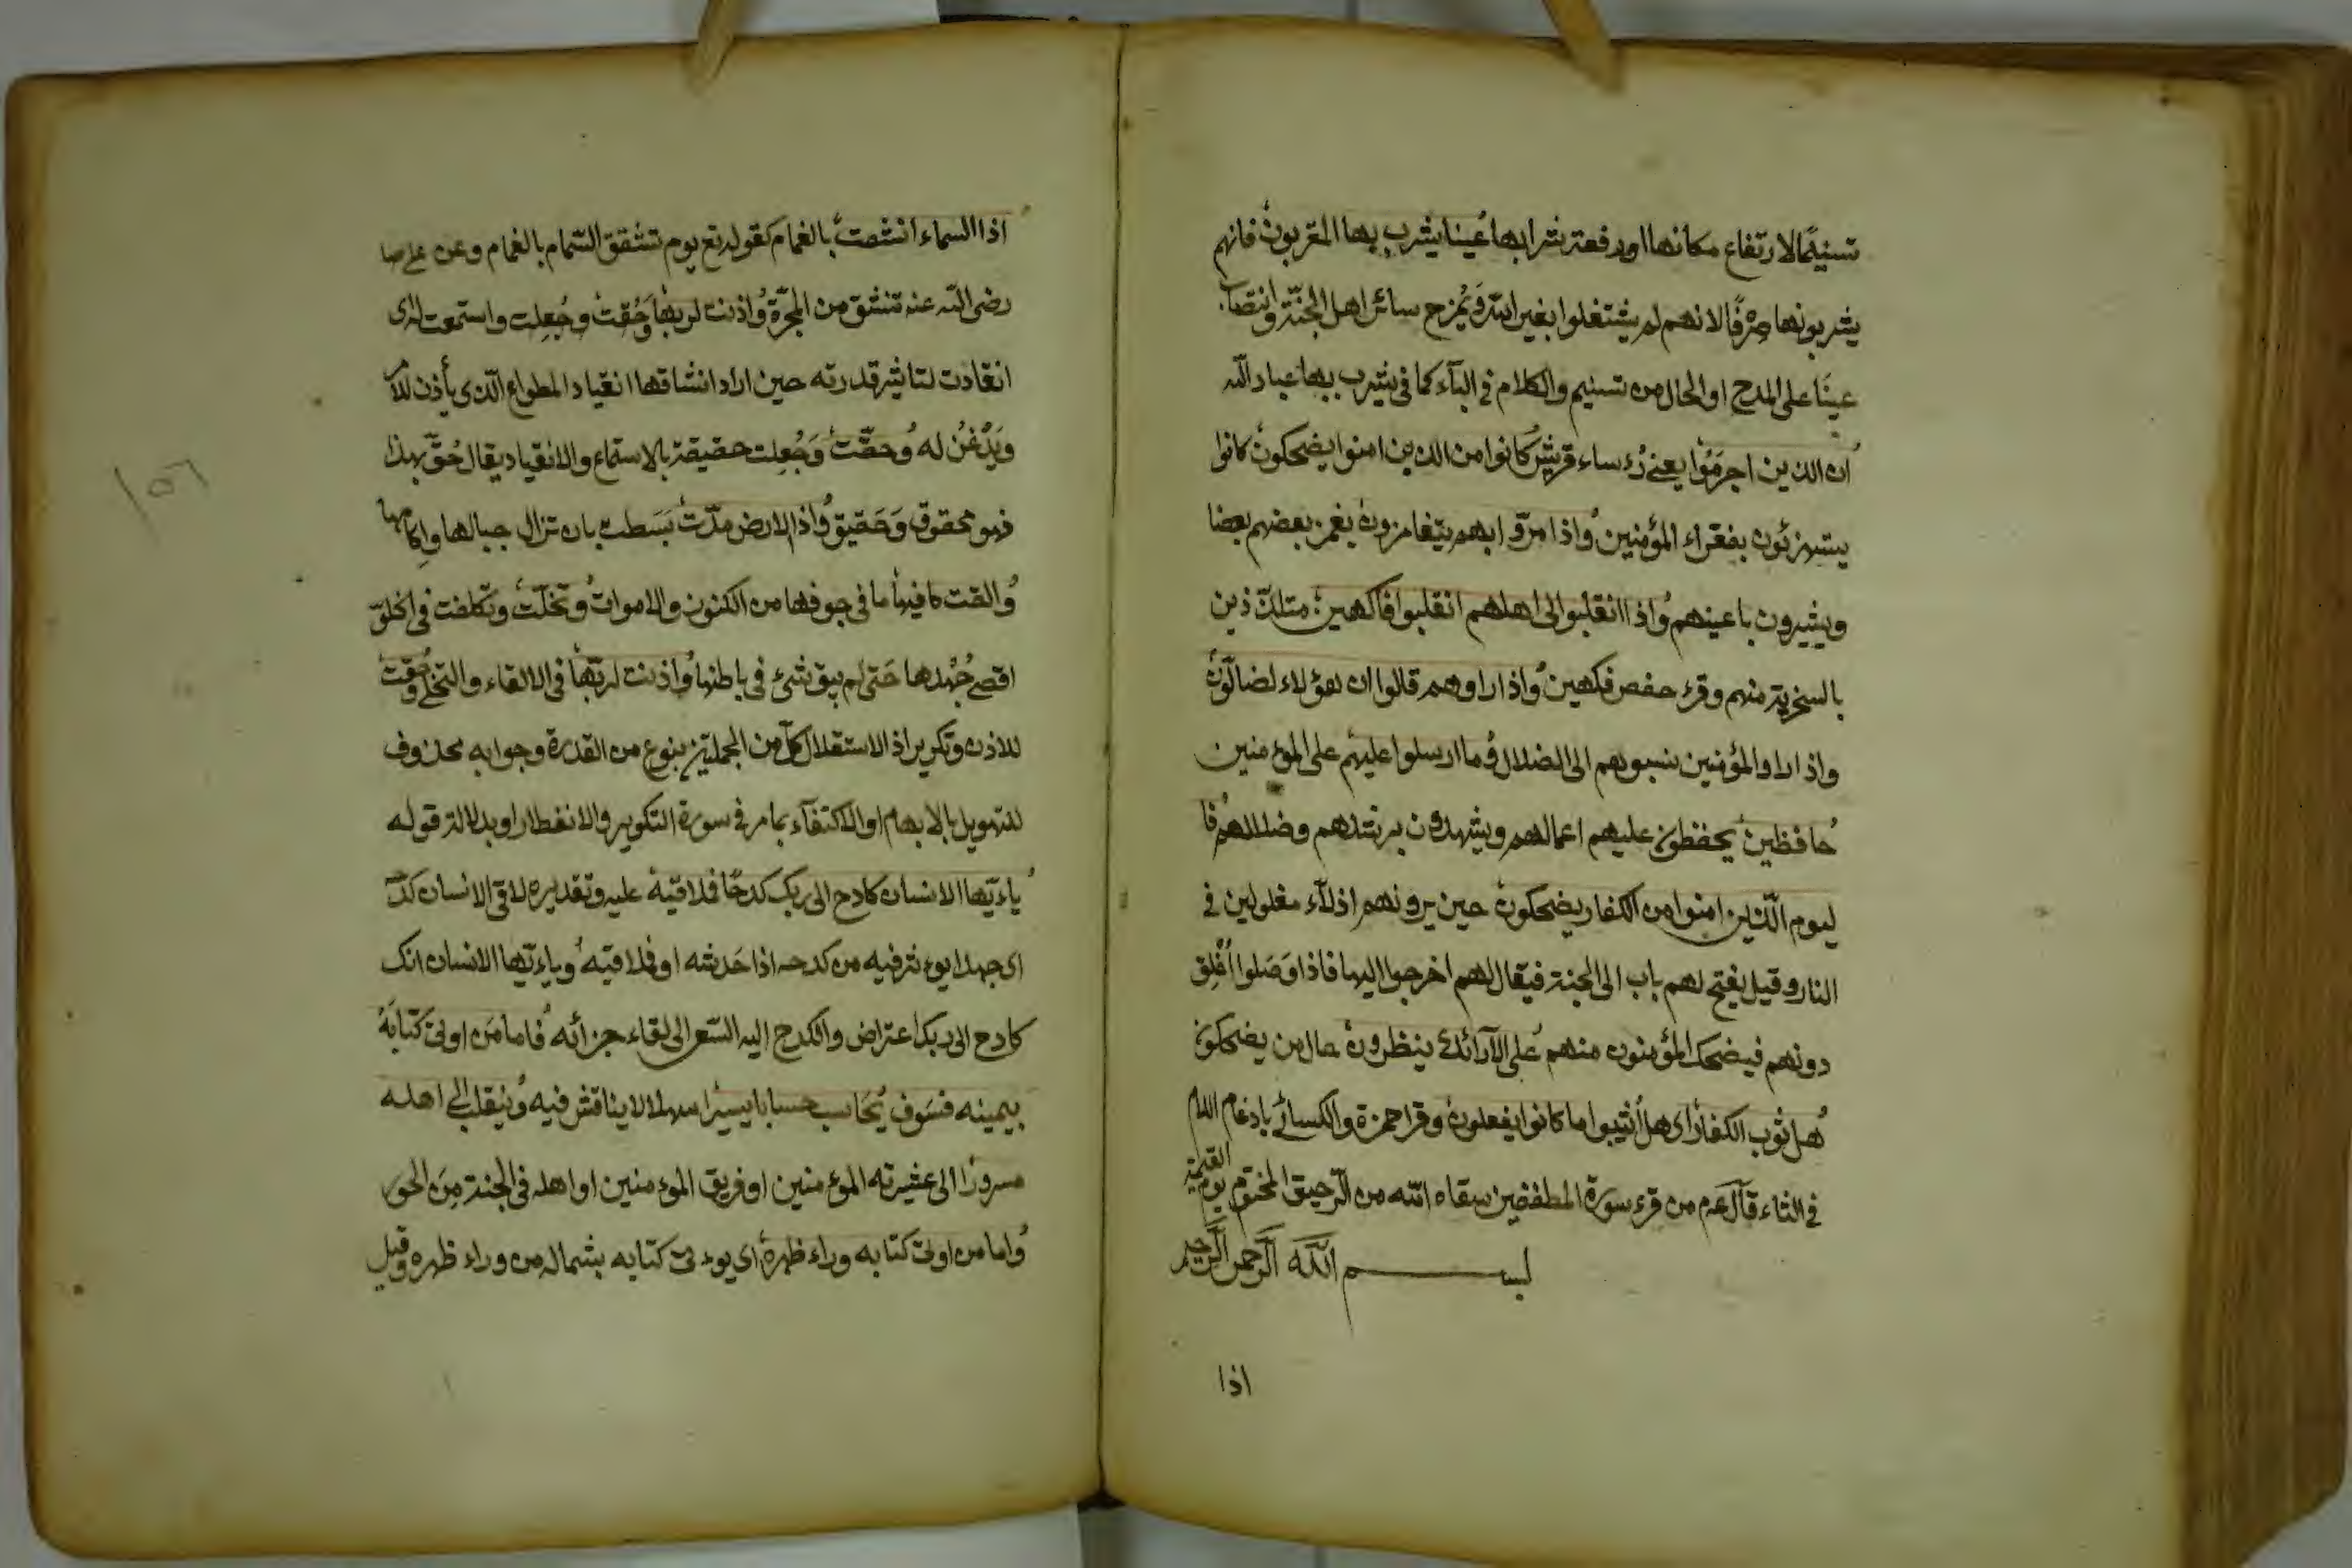 تسنيمًا لارتفاع مكانها او رفعة شرابها عينا يشرب بها المقربون فانهم
يشربونها صِرْفًا لانهم لم يشتغلوا بغير الله وَيُمزج سائر اهل الجنّة وانتصاب
عينًا على المدح او الحال من تسنيم والكلام فى البآء كما فى يشرب بها عباد الله
ان الذين اجرَمُوْا يعنى رُءساء قريش كانوا من الذين امنوا يضحكون كانوا
يستهزئون بفقراء المؤمنين وُاذا مرّوا بهم يتغامزون يغمز بعضهم بعضا
ويشيرون باعينهم وُاذا انقلبوا الى اهلهم انقلبوا فاكهين متلذّذين
بالسخرية منهم وقرء حفص فكهين وُاذا راوهم قالوا ان هؤلاء لضالّون
واذا راوا المؤمنين نسبوهم الى الضلال وُما ارسلوا عليهم على المؤمنين
حُافظين يحفظون عليهم اعمالهم ويشهدون برشدهم وضلالهم فُا
ليوم الّذين امنوا من الكفار يضحكون حين يرونهم اذلآء مغلولين فى
النار وقيل يفتح لهم باب الى الجنة فيقال لهم اخرجوا اليها فاذا وَصَلوا اُغْلِق
دونهم فيضحك المؤمنون منهم عُلى الآرائك ينظرون حال من يضحكون
هُل ثوب الكفار اى هل اُثيبوا ما كانوا يفعلون وقرا حمزة والكسائى بادغام اللام
فى الثاء قآل عم من قرء سورة المطففين سقاه الله من الرّحيق المختوم يوم القيمة
بســــــم اللّه الرّحمن الرّحيم
اذا
اذا السماء انشقت بالغمام كقوله تع يوم تشقق السّماء بالغمام وعن على
رضى الله عنه تنشق من المجرّة وُاذنت لربها وَحُقت وجُعِلت واستمعت اى
انقادت لتاثير قدرته حين اراد انشاقها انقياد المطواع الّذى يأذن للامر
وَيُذْعَنُ له وُحقّت وَجُعِلت حقيقة بالاستماع والانقياد يقال حُقّ بهذا
فهو محقوق وَحَقيق وُاذا الارض مدّت بَسَطت بان تزال جبالها واٰكامها
وُالقت ما فيها ما فى جوفها من الكنوز والاموات وُتخلّت وتكلفت فى الخلوّ
اقصى جُهْدها حَتى لم يبق شئ فى باطنها وُاذنت لربّها فى الالقاء والتخلى وحُقت
للاذن وتكرير اذا لاستقلال كل من الجملتين بنوع من القدرة وجوابه محذوف
للتهويل بالابهام او الاكتفآء بما مر فى سورة التكوير والانفطار او بدلالة قوله
يُاءيّها الانسان كادح الى ربك كدحًا فملاقيه عليه وتقديره لاقى الانسان كدحه
اى جهدا يوءثر فيه من كدحه اذا خَدشه او فملاقيه وُياءيّها الانسان انك
كادح الى ربك اعتراض والكدح اليه السّعى الى لقاء جزائه فُاما مَن اوتى كتابَهُ
بيمينه فسَوف يُحَاسب حسابا يسيرًا سهلا لا يناقش فيه وُينقلب الى اهله
مسرورًا الى عشيرته الموءمنين او فريق الموءمنين او اهله فى الجنة مِنَ الحور
وُاما من اوتى كتابه وراء ظهره اى يوءتى كتابه بشماله من وراء ظهره وقيل